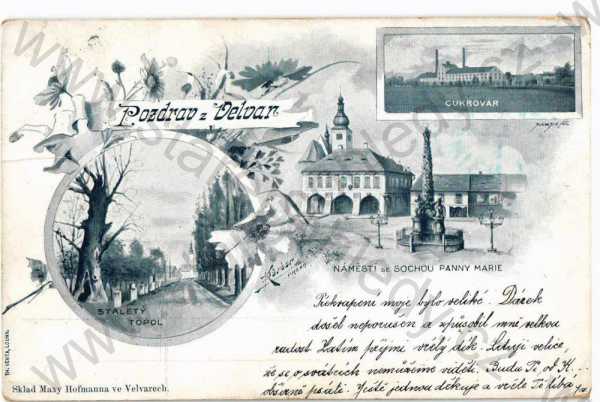 Pozdrav z Velvar.
CUKROVAR
NÁMĚSTÍ SE SOCHOU PANNY MARIE
STALETÝ
TOPOL
Překvapení moje bylo veliké. Dárek
došel neporušen a způsobil mně velkou
radost
přijmi vřelý dík. Lituji velice,
že se o svátcích nemůžeme viděti. Budu Ti od K.
obšírně psáti. Ještě jednou děkuje a vřele Tě líbá
Sklad Maxy Hofmanna ve Velvarech.